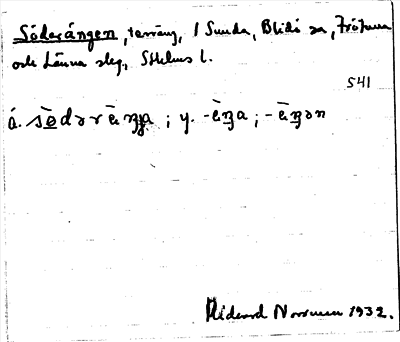 Söderängen, terräng, 1 Sunda, Blidö sn, Frötuna
och Länna slg., Sthlms l.
541
á. sö̀dərèŋa ; y. -èŋa ; -èŋən
Rideard Norrman 1932.